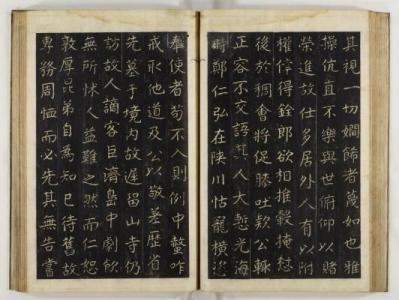 其視一切嫺飾者蔑如也雅
操伉直不樂與世俯仰以賭
榮進故仕多居外人有以附
權倖得銓郎欲相推轂掩愆
後於稠會將促膝吐款公輒
正容不交語其人大慙光海
時鄭仁弘在陝川怙寵橫恣
奉使者苟不入則例中螫咋
戒取他道及公以敬差歷省
先墓于境內故遲留山寺仍
訪故人謫客巨濟島中劇飮
無所怵人益難之然而仁恕
敦厚昆弟自為知己待舊故
專務周恤而必先其無告嘗